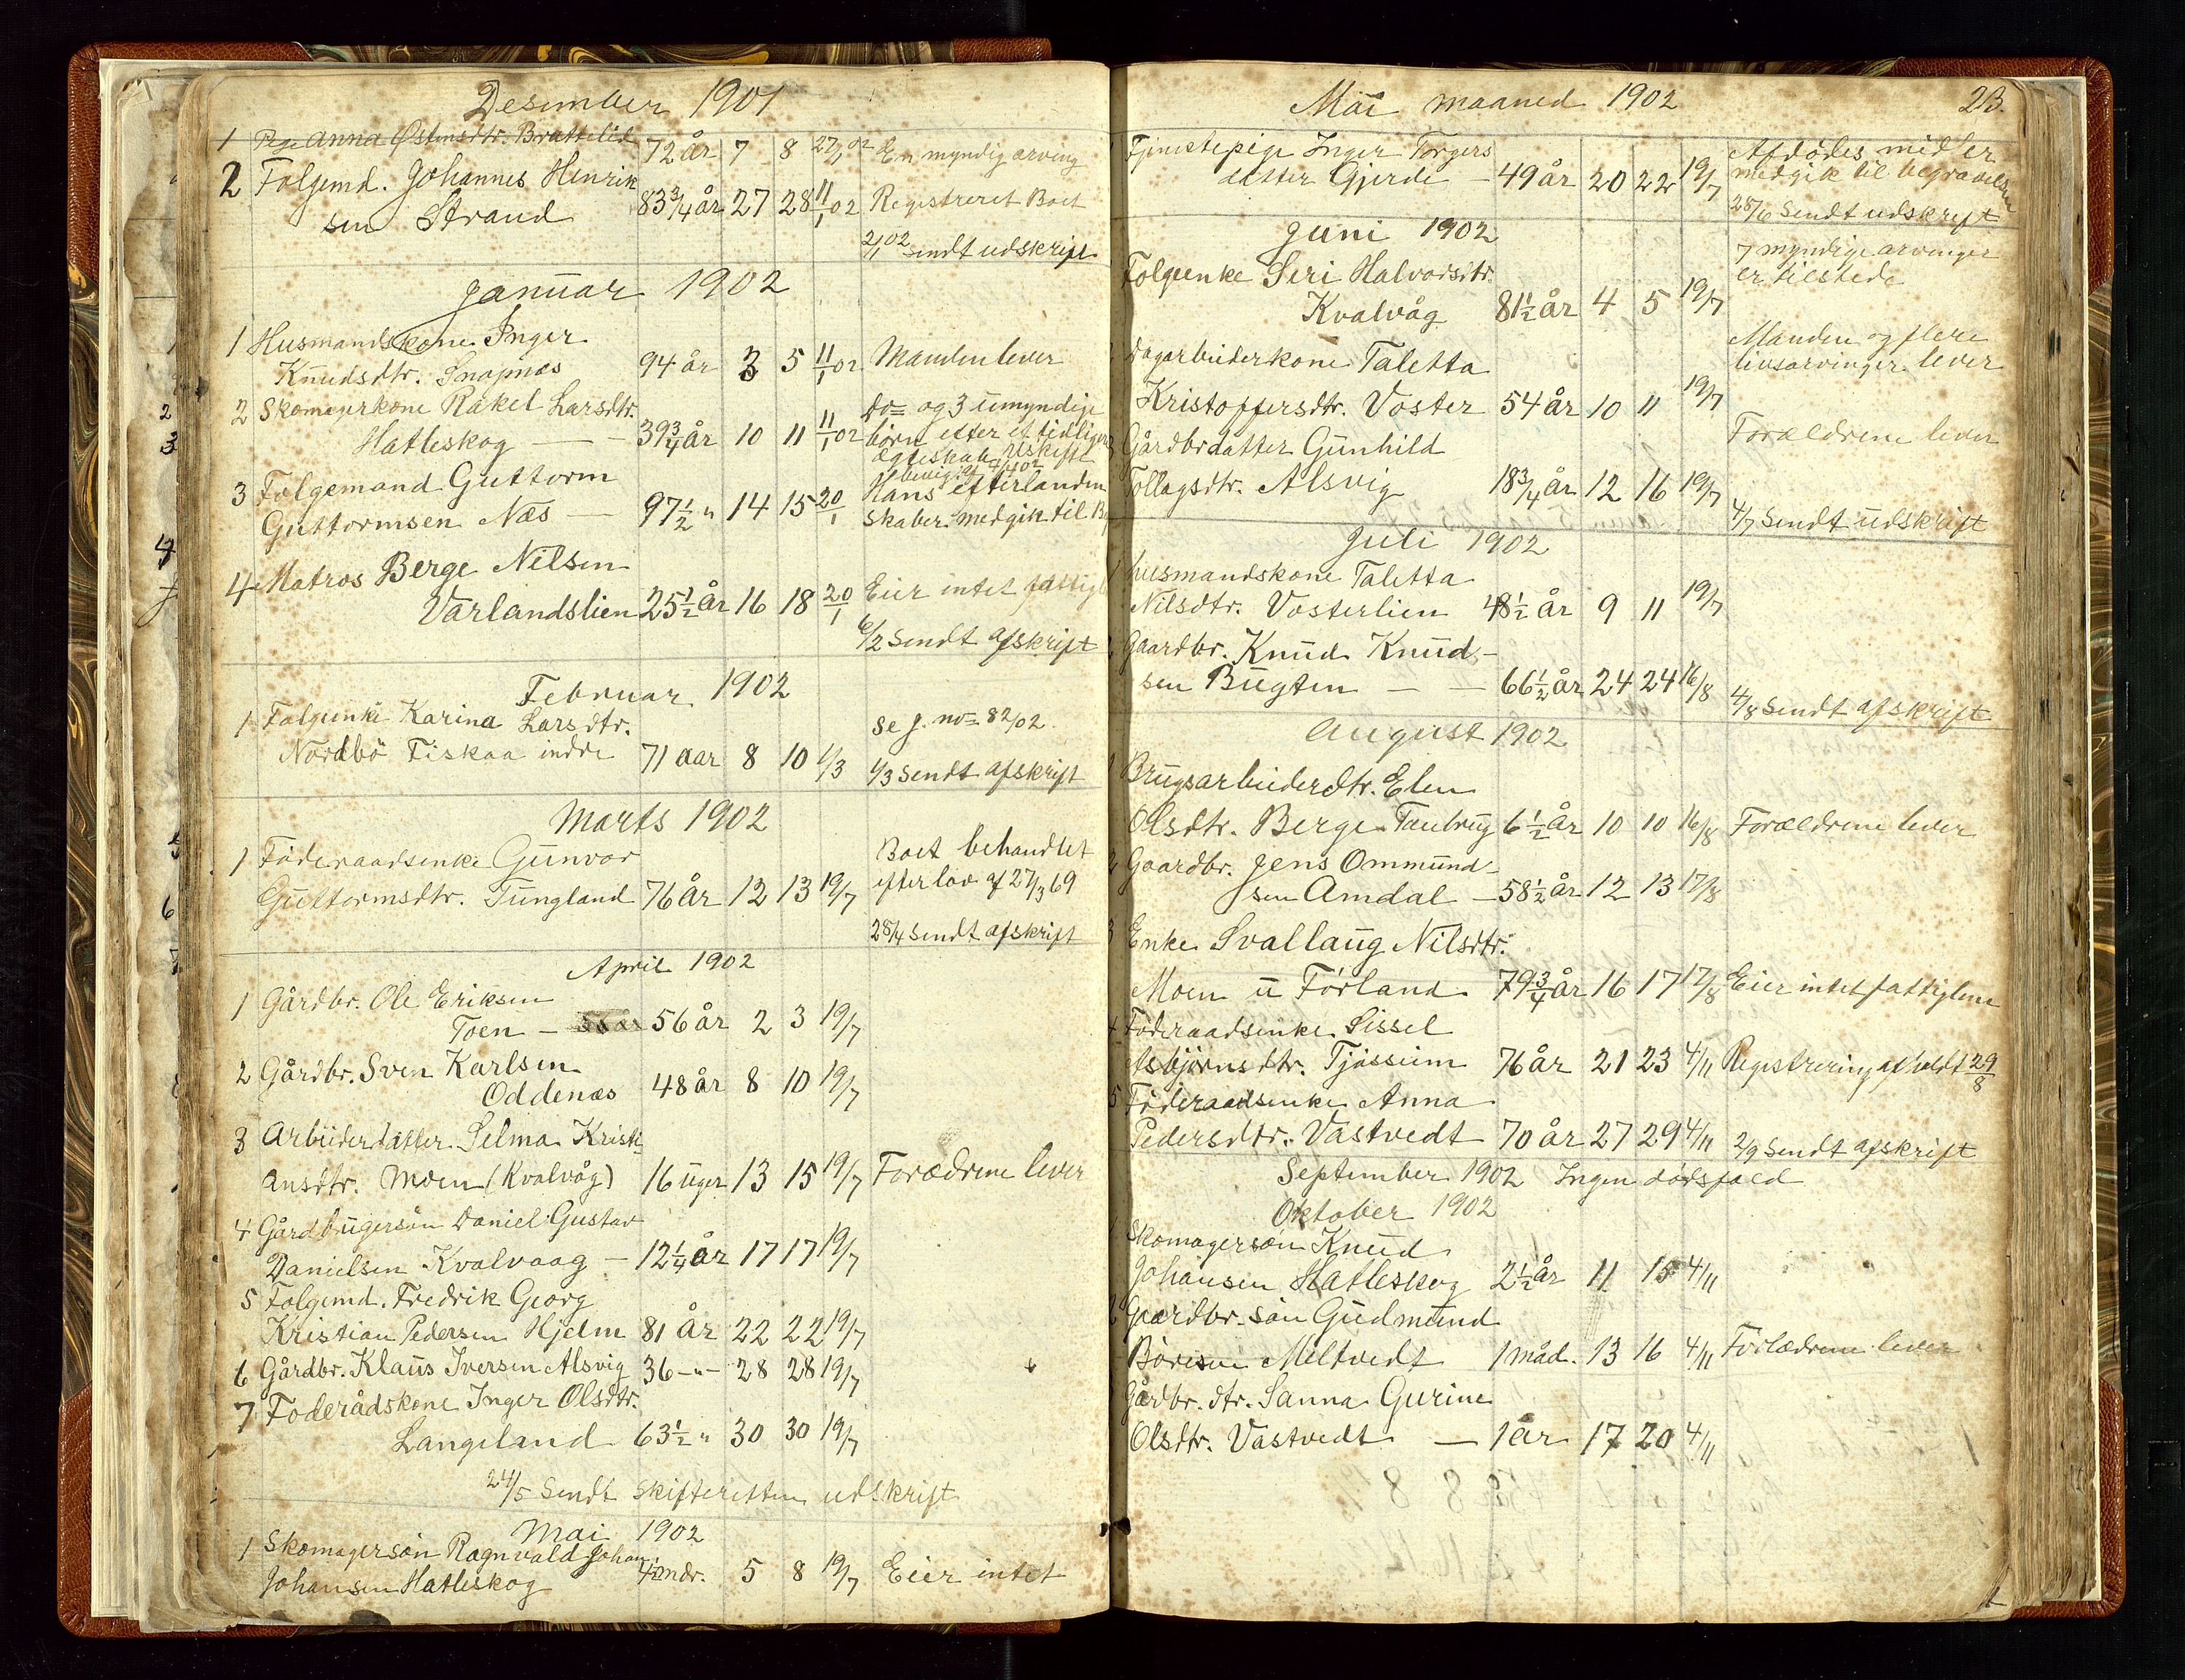 Desember 1901
1 Pige Anna Østensdtr. Brattelid 72 år 7 8 27/1 02 En myndig arving
2 Folgemd. Johannes Henrik
sen Strand 83 3/4 år 27 28 11/1 02 Registreret Boet
2/1 02 sendt udskrift
Januar 1902
1 Husmandskone Inger
Knudsdtr. Snapnæs 94 år 3 5 11/1 02 Manden lever
2 Skomagerkone Rakel Larsdtr.
Hatleskog — 39 3/4 år 10 11 11/1 02 Do= og 3 umyndige
børn efter et tidligere
ægteskab. Uskifte
bevig. 4/4 02
3 Følgemand Guttorm
Guttormsen Næs — 97 1/2 " 14 15 20/1 Hans efterladen
skaber medgik til
4 Matros Berge Nilsen
Varlandslien 25 1/2 år 16 18 20/1 Eier intet
6/2 sendt afskrift
Februar 1902
1 Folgenke Karina Larsdtr.
Nordbö Fiskaa indre 71 aar 8 10 1/3 Se J. no= 82/02
1/3 sendt afskrift
Marts 1902
1 Föderaadsenke Gunvor
Guttormsdtr. Tungland 76 år 12 13 19/7 Boet behandlet
efter lov af 27/3 69
28/4 sendt afskrift
April 1902
1 Gårdbr. Ole Eriksen
Toen — 56 år 2 3 19/7
2 Gårdbr. Sven Karlsen
Oddenæs 48 år 8 10 19/7
3 Arbeiderdatter Selma Kristi
ansdtr. Moen (Kvalvåg) 16 uger 13 15 19/7 Forædrene lever
4 Gårdbrugersøn Daniel Gustav
Danielsen Kvalvaag — 12 1/4 år 17 17 19/7
5 Folgemd. Fredrik Georg
Kristian Pedersen Hjelm 81 år 22 22 19/7
6 Gårdbr. Klaus Iversen Alsvig 36 -"- 28 28 19/7
7 Foderådskone Inger Olsdtr.
Langeland 63 1/2 " 30 30 19/7
24/5 Sendt skifteretten udskrift
Mai 1902
1 Skomagersøn Ragnvald Johan
Johansen Hatleskog 4 1/2 mdr. 5 8 19/7 Eier intet
Mai maaned 1902 23.
Tjenestepige Inger Torgers
datter Gjerde — 49 år 20 22 19/7 Afdødes midler
medgik til begravelsen
28/6 sendt udskrift
Juni 1902
Folgeenke Seri Halvorsdtr.
Kvalvåg 81 1/2 år 4 5 19/7 7 myndige arvinger
er tilstede
Dagarbeiderkone Taletta
Kristoffersdtr. Voster 54 år 10 11 19/7 Manden og flere
livsarvinger lever
Gårdbrdatter Gunhild
Tollagsdtr. Alsvig 18 3/4 år 12 16 19/7 Forældrene lever
4/7 sendt udskrift
Juli 1902
1 Husmandskone Taletta
Nilsdtr. Vosterlien 48 1/2 år 9 11 19/7
2 Gaardbr. Knud Knud-
sen Bugten — — 66 1/2 år 24 24 16/8
4/8 sendt afskrift
August 1902
1 Brugsarbeiderdtr. Elen
Olsdtr. Berge Taubrug 6 1/2 år 10 10 16/8 Forældrene lever
2 Gaardbr. Jens Ommund-
sen Amdal — 58 1/2 år 12 13 17/8
3 Enke Svallaug Nilsdtr.
Moen u Förland 79 3/4 år 16 17 17/8 Eier intet fattiglem
4 Föderaadsenke Sissel
Asbjörnsdtr. Tjössem 76 år 21 23 4/11 Registrering afholdt 29/8
5 Föderaadsenke Anna
Pedersdtr. Vastvedt 70 år 27 29 4/11 2/9 sendt afskrift
September 1902 Ingen dødsfald
Oktober 1902
1 Skomagersøn Knud
Johansen Hatleskog 2 1/2 år 11 15 4/11
2 Gaardbr. søn Gudmund
Böresen Meltvedt 1 måd. 13 16 4/11 Forlædrene lever
Gårdbr. dtr. Sanna Gurine
Olsdtr. Vastvedt — 1 år 17 20 4/11